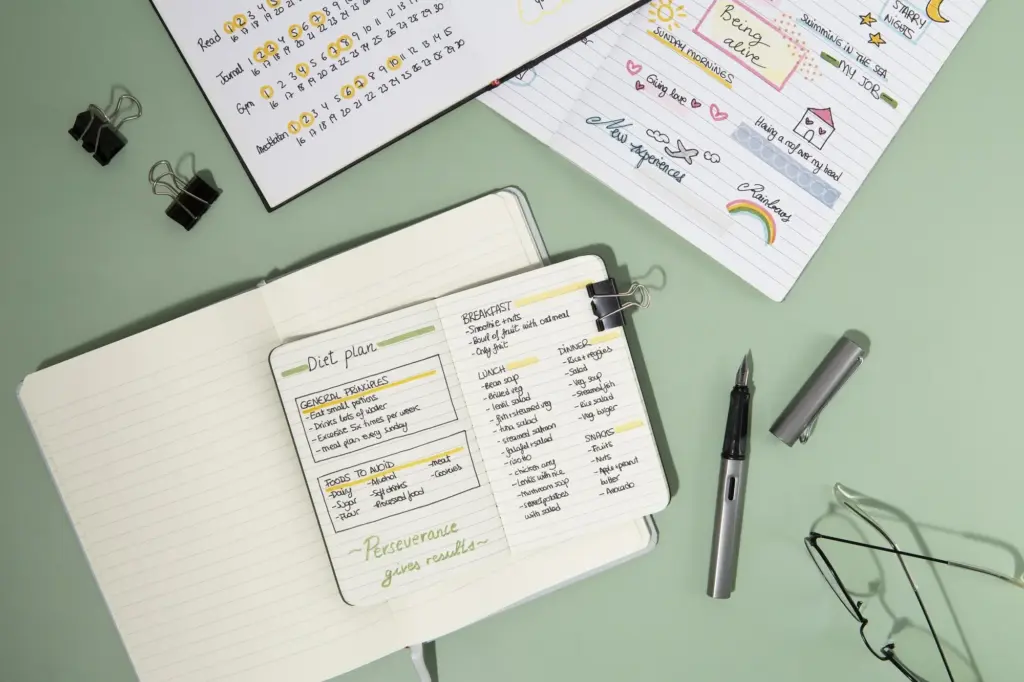 Read 1 2 3 4 5 6 7 8 9 10 11 12 13 14 15
16 17 18 19 20 21 22 23 24 25 26 27 28 29 30
Journal 1 2 3 4 5 6 7 8 9 10 11 12 13 14 15
16 17 18 19 20 21 22 23 24 25 26 27 28 29 30
Gym 1 2 3 4 5 6 7 8 9 10 11 12 13 14 15
16 17 18 19 20 21 22 23 24 25 26 27 28 29 30
Meditation 1 2 3 4 5 6 7 8 9 10 11 12 13 14 15
16 17 18 19 20 21 22 23 24 25 26 27 28 29 30
Being
alive
STARRY
NIGHTS
SUNDAY MORNINGS
SWIMMING IN THE SEA
MY JOB
Giving love
Having a roof over my head
New experiences
Rainbows
Diet plan
GENERAL PRINCIPLES
- Eat small portions
- Drinks lots of water
- Excersise six times per week
- meal plan every sunday
FOODS TO AVOID
- Daily - Alcohol - meat
- Sugar - Soft drinks - Cookies
- Flour - Processed food
~Perseverance
gives results~
BREAKFAST
- Smoothie + nuts
- Bowl of fruit with oatmeal
- Only fruit
LUNCH
- Bean soup
- Baked veg
- lentil salad
- fish + steamed veg
- tuna salad
- steamed salmon
- falafel + salad
- risotto
- chicken curry
- Lentils with rice
- Mushroom soup
- sweet potatoes
with salad
DINNER
- Rice + veggies
- Salad
- Veg soup
- Steamed fish
- Rice salad
- Veg burger
SNACKS
- Fruits
- Nuts
- Apple + peanut
butter
- Avocado